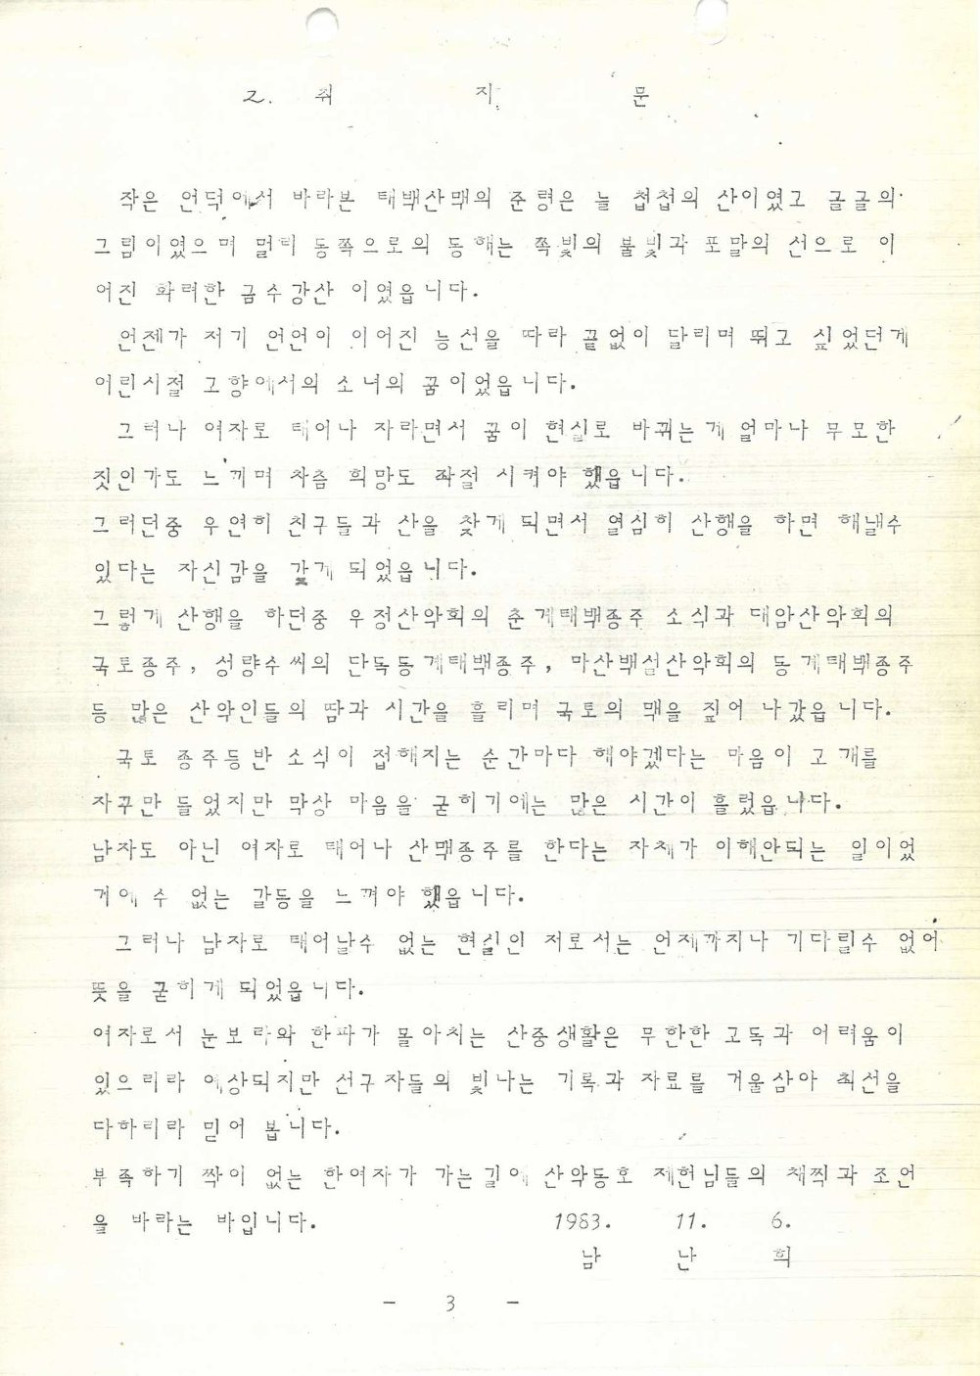 2. 취 지 문
작은 언덕에서 바라본 태백산맥의 준령은 늘 첩첩의 산이였고 골골의
그림이였으며 멀리 동쪽으로의 동해는 쪽빛의 불빛과 포말의 선으로 이
어진 화려한 금수강산 이였읍니다.
언젠가 저기 언언이 이어진 능선을 따라 끝없이 달리며 뛰고 싶었던게
어린시절 고향에서의 소녀의 꿈이었읍니다.
그러나 여자로 태어나 자라면서 꿈이 현실로 바뀌는게 얼마나 무모한
짓인가도 느끼며 차츰 희망도 좌절 시켜야 했읍니다.
그러던중 우연히 친구들과 산을 찾게 되면서 열심히 산행을 하면 해낼수
있다는 자신감을 갖게 되었읍니다.
그렇게 산행을 하던중 우정산악회의 춘계태백종주 소식과 대암산악회의
국토종주, 성량수씨의 단독동계태백종주, 마산백섬산악회의 동계태백종주
등 많은 산악인들의 땀과 시간을 흘리며 국토의 맥을 짚어 나갔읍니다.
국토 종주등반 소식이 접해지는 순간마다 해야겠다는 마음이 고개를
자꾸만 들었지만 막상 마음을 굳히기에는 많은 시간이 흘렀읍니다.
남자도 아닌 여자로 태어나 산맥종주를 한다는 자체가 이해안되는 일이었
기에 수 없는 갈등을 느껴야 했읍니다.
그러나 남자로 태어날수 없는 현실인 저로서는 언제까지나 기다릴수 없어
뜻을 굳히게 되었읍니다.
여자로서 눈보라와 한파가 몰아치는 산중생활은 무한한 고독과 어려움이
있으리라 예상되지만 선구자들의 빛나는 기록과 자료를 거울삼아 최선을
다하리라 믿어 봅니다.
부족하기 짝이 없는 한여자가 가는길에 산악동호 제헌님들의 채찍과 조언
을 바라는 바입니다. 1983. 11. 6.
남 난 희
- 3 -